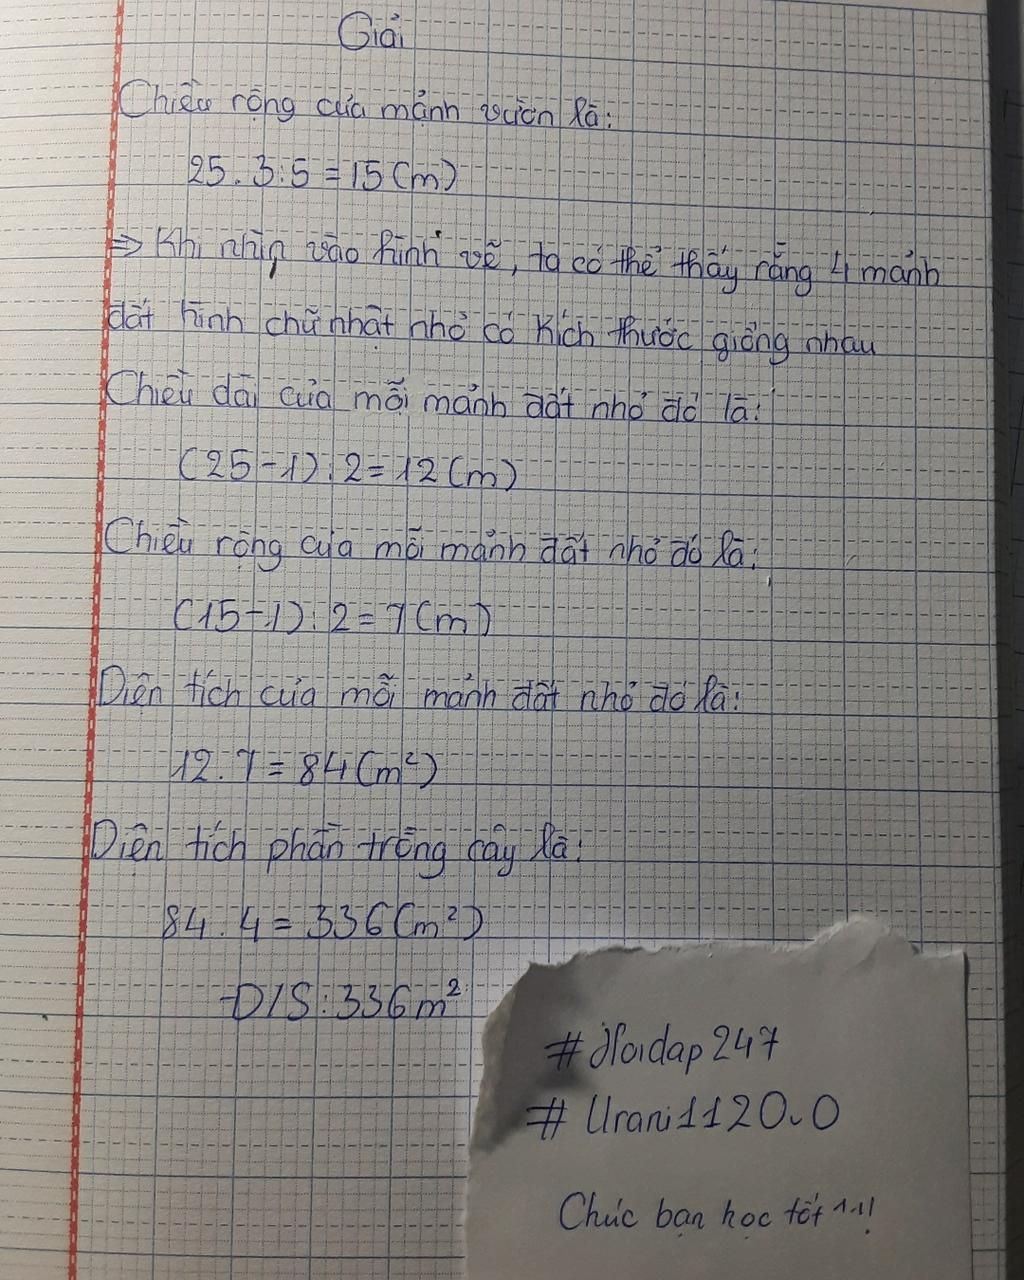 Giải
Chiều rộng của mảnh vườn là:
25.3:5=15(m)
=> Khi nhìn vào hình vẽ, ta có thể thấy rằng 4 mảnh
đất hình chữ nhật nhỏ có kích thước giống nhau
Chiều dài của mỗi mảnh đất nhỏ đó là:
(25-1):2=12(m)
Chiều rộng của mỗi mảnh đất nhỏ đó là:
(15-1):2=7(m)
Diện tích của mỗi mảnh đất nhỏ đó là:
12.7=84(m²)
Diện tích phần trồng cây là:
84.4=336(m²)
Đ/S:336m²
#Hoidap247
#Urani1120.0
Chúc bạn học tốt ^^!